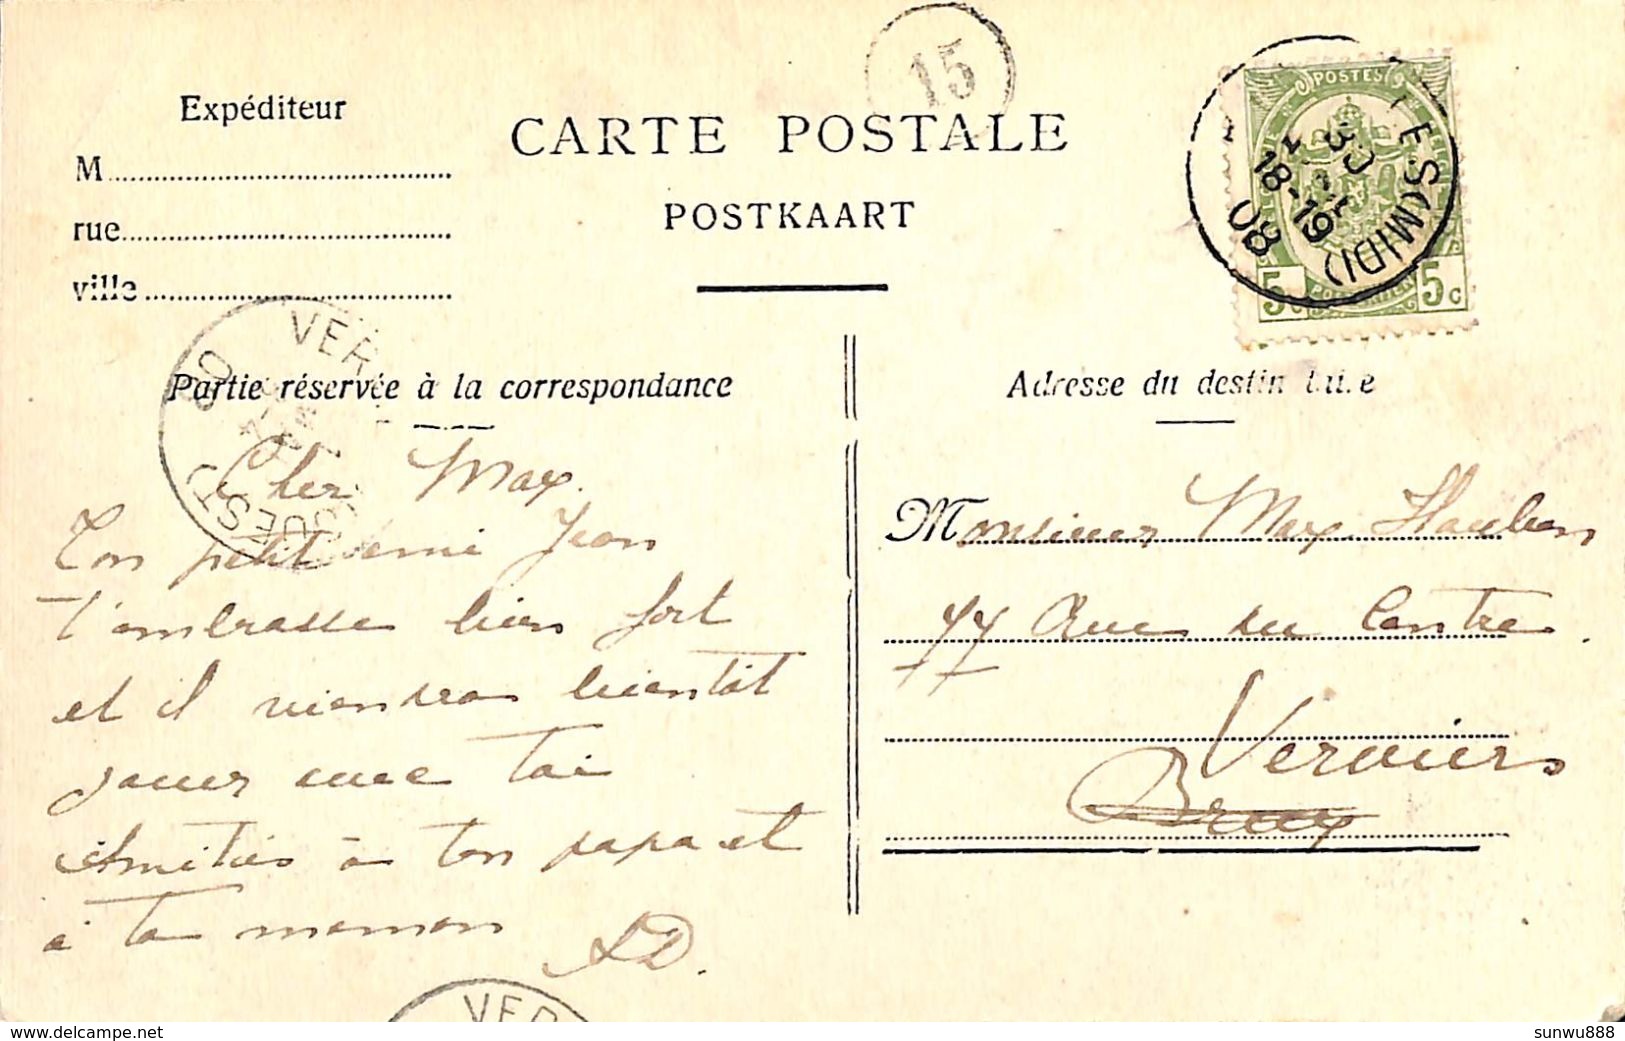 15
Expéditeur
M
rue
ville
CARTE POSTALE
POSTKAART
POSTES
5c 5c
ES(MIDI)
30
18-19
08
VER
OUEST
Partie réservée à la correspondance
Adresse du destinataire
Cher Max.
Ton petit ami Jean
t'embrasse bien fort
et il viendra bientôt
jouer avec toi
Amitiés à ton papa et
à ta maman
AD.
Monsieur Max Hauben
77 Rue du Centre.
Verviers
Brux
VER
www.delcampe.net
sunwu888